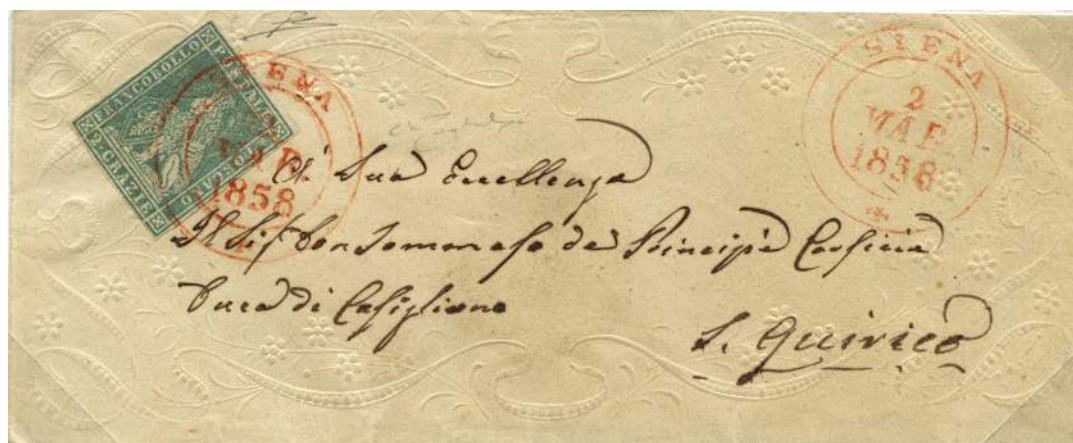 FRANCOBOLLO
POSTALE
TOSCANO
2. CRAZIE
SIENA
MAR
1858
SIENA
2
MAR.
1858
A Sua Eccellenza
Il Sig Don Tommaso de Principi Corsini
Duca di Casigliano
S. Quirico